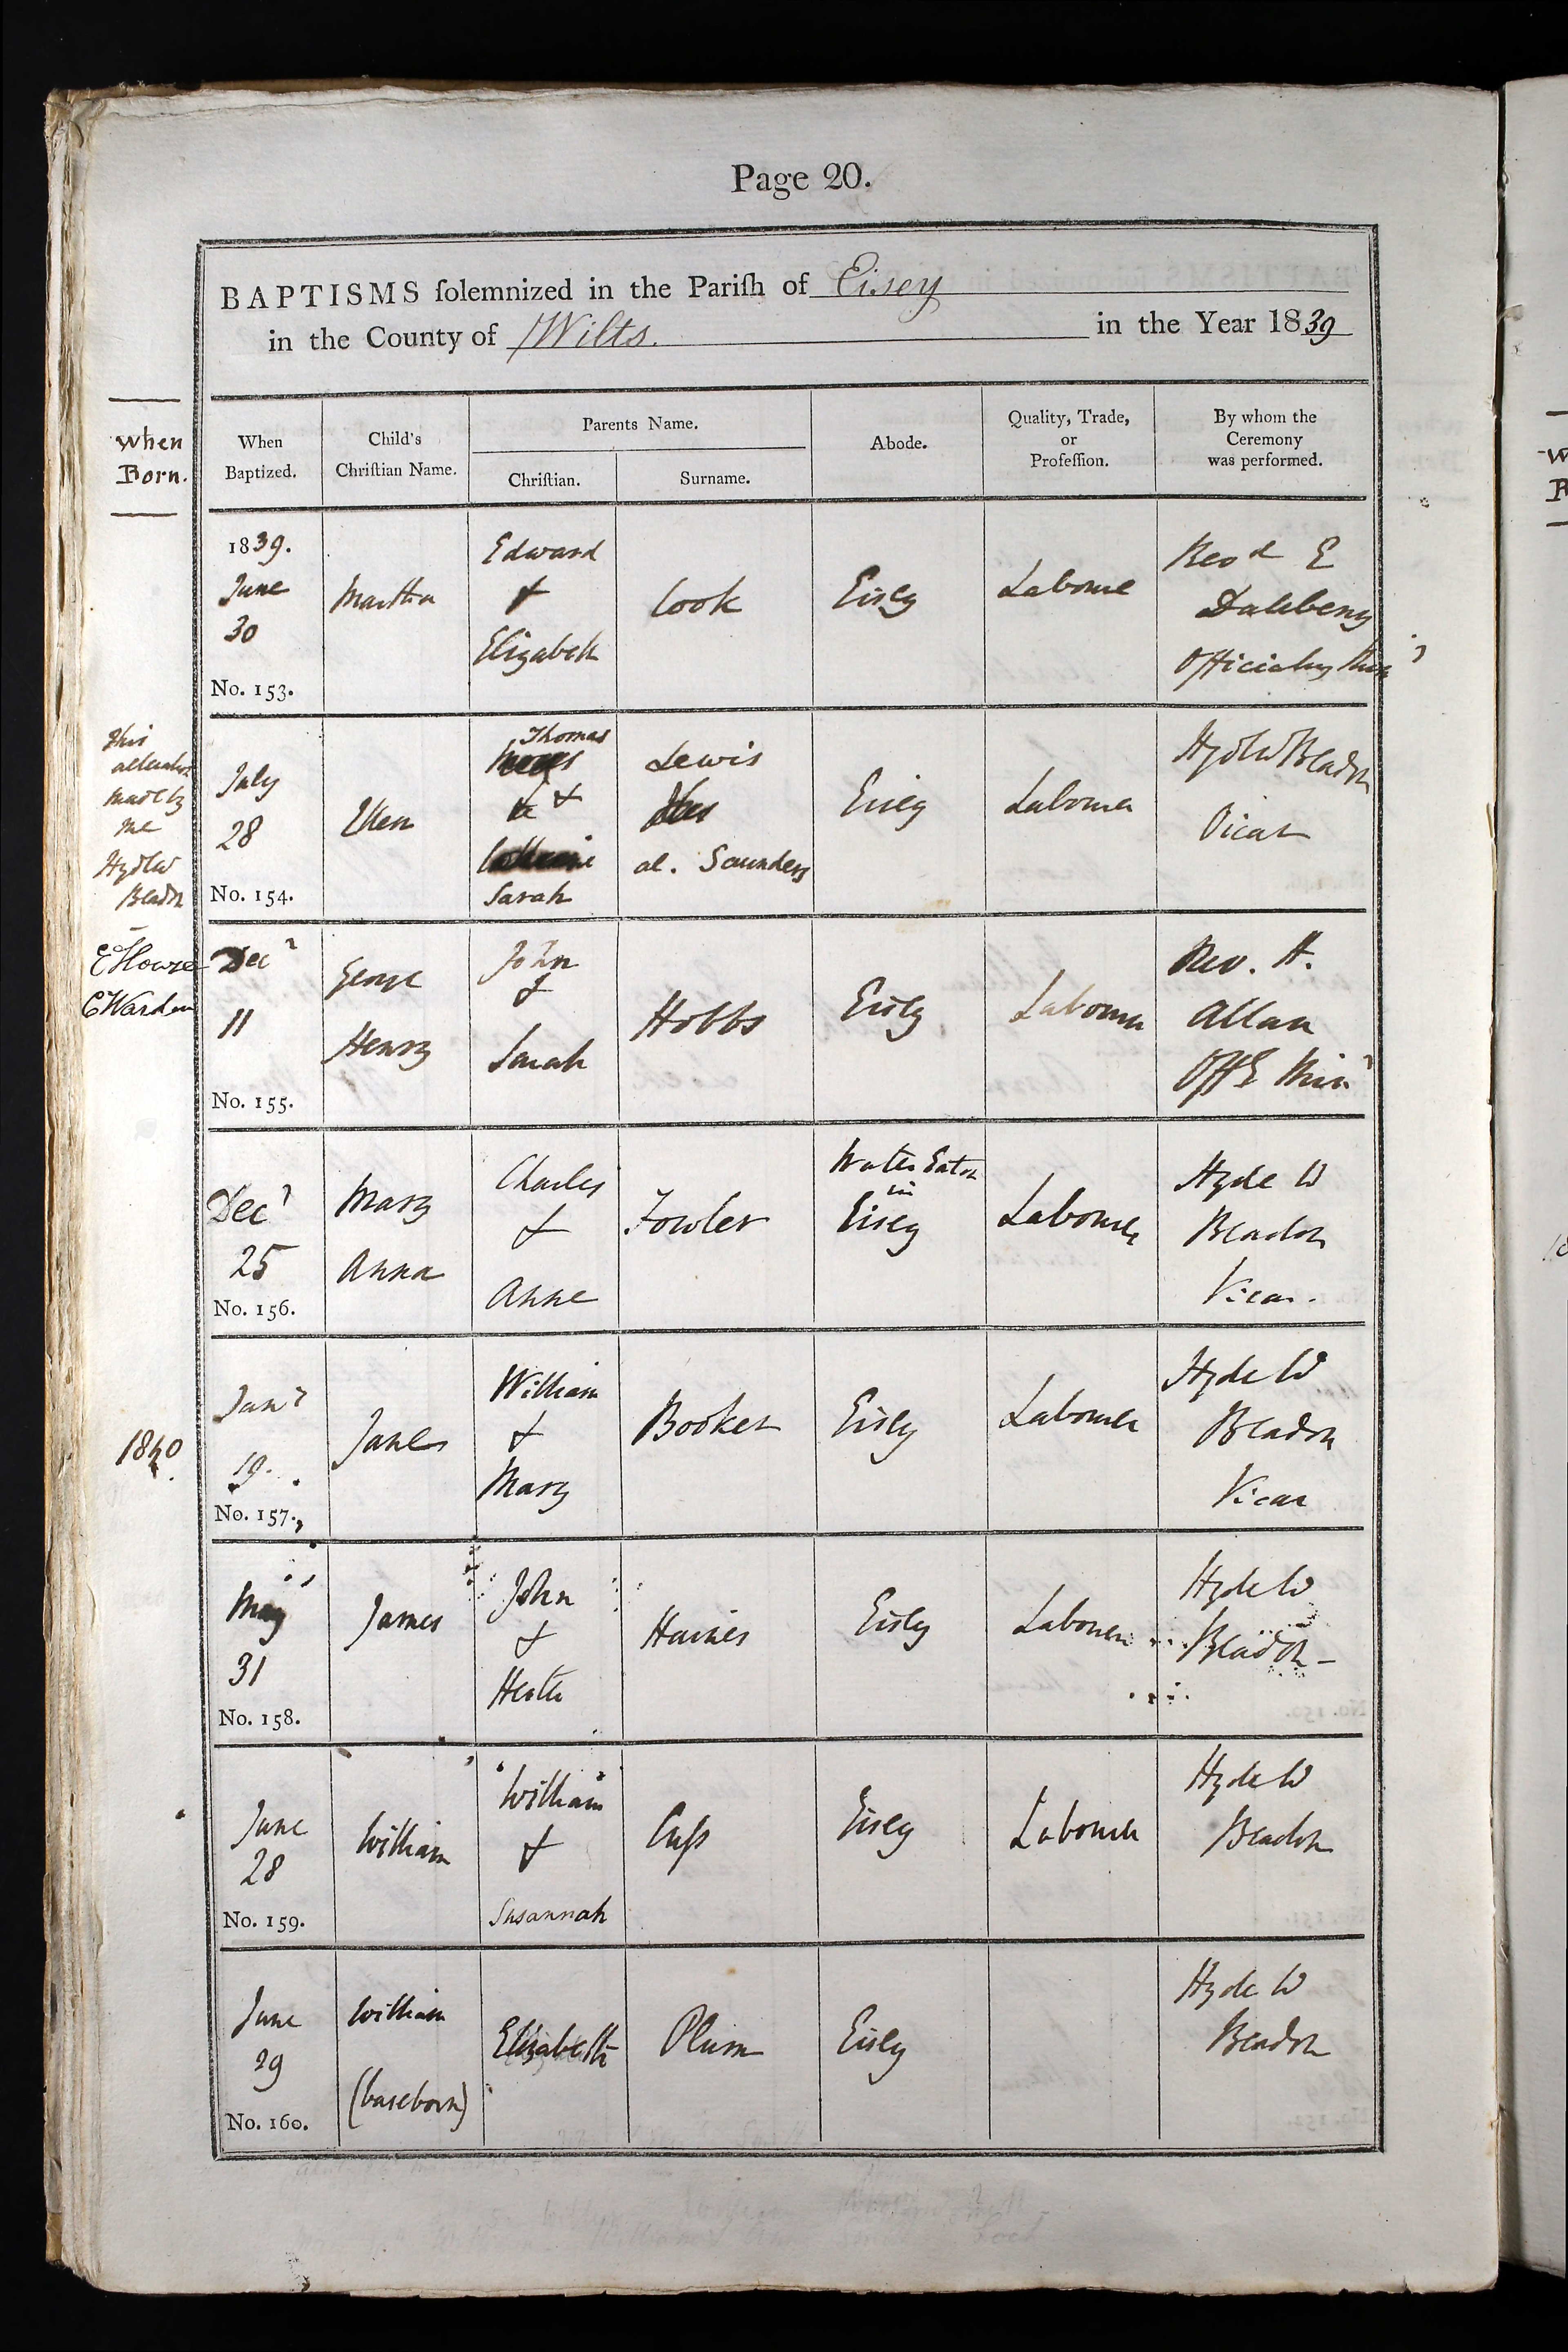 Page 20.
BAPTISMS ſolemnized in the Pariſh of Eisey
in the County of Wilts. in the Year 1839
When
Born.
When
Baptized.
Child's
Chriſtian Name.
Parents Name.
Chriſtian.
Surname.
Abode.
Quality, Trade,
or
Profeſſion.
By whom the
Ceremony
was performed.
1839.
June
30
No. 153.
Martha
Edward
&
Elizabeth
Cook
Eisey
Labourer
Revd E
Officiating
This
alteration
made by
me
Hyde W
Beadon
July
28
No. 154.
Ellen
Thomas
&
Sarah
Lewis
al. Saunders
Eisey
Labourer
Hyde W Beadon
Vicar
E Howse
C Warden
Decr
11
No. 155.
George
Henry
John
&
Sarah
Hobbs
Eisey
Labourer
Rev. H.
Allan
Offg Minr
Decr
25
No. 156.
Mary
Anna
Charles
&
Anne
Fowler
Water Eaton
in
Eisey
Labourer
Hyde W
Beadon
Vicar.
1840
Janr
19.
No. 157.
Jane
William
&
Mary
Booker
Eisey
Labourer
Hyde W
Beadon
Vicar
May
31
No. 158.
James
John
&
Haines
Eisey
Labourer
Hyde W
Beadon
June
28
No. 159.
William
William
&
Susannah
Eisey
Labourer
Hyde W
Beadon
June
29
No. 160.
William
(baseborn)
Elizabeth
Plum
Eisey
Hyde W
Beadon